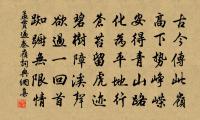 古今傳此嶺
高下勢崢嶸
安得青山路
化為平地行
蒼苔留虎跡
碧樹障溪聲
欲過一回首
踟躕無限情
孟貫過秦嶺詞典網集